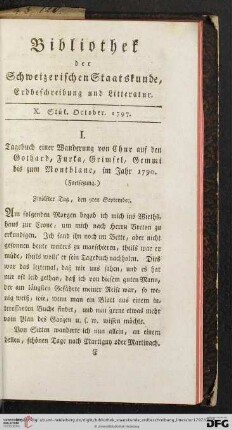 Bibliothek
der
Schweizerischen Staatskunde,
Erdbeschreibung und Litteratur.
X. Stük. October. 1797.
I.
Tagebuch einer Wanderung von Chur auf den
Gothard, Furka, Grimsel, Gemmi
bis zum Montblanc, im Jahr 1790.
(Fortsezung.)
Zwölfter Tag, den 5ten September.
Am folgenden Morgen begab ich mich ins Wirths-
haus zur Crone, um mich nach Herrn
erkundigen. Ich fand ihn noch im Bette, aber nicht
gesonnen heute weiters zu marschieren, theils war er
müde, theils wollt' er sein Tagebuch nachholen. Dies
war das leztemal, daß wir uns sahen, und es hat
mir oft leid gethan, daß ich von diesem guten Mann,
der am längsten Gefährte meiner Reise war, so we-
nig weiß, wie, wenn man ein Blatt aus einem in-
teressanten Buche findet, und nun gerne etwas mehr
vom Plan des Ganzen u. s. w. wissen möchte.
Von Sitten wanderte ich nun allein, an einem
hellen, schönen Tage nach Martigny oder Martinach,
DFG